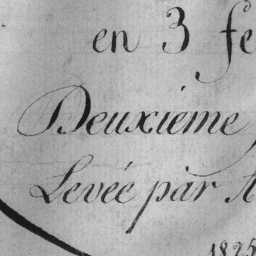 en 3 fe
Deuxième
Levée par
1825